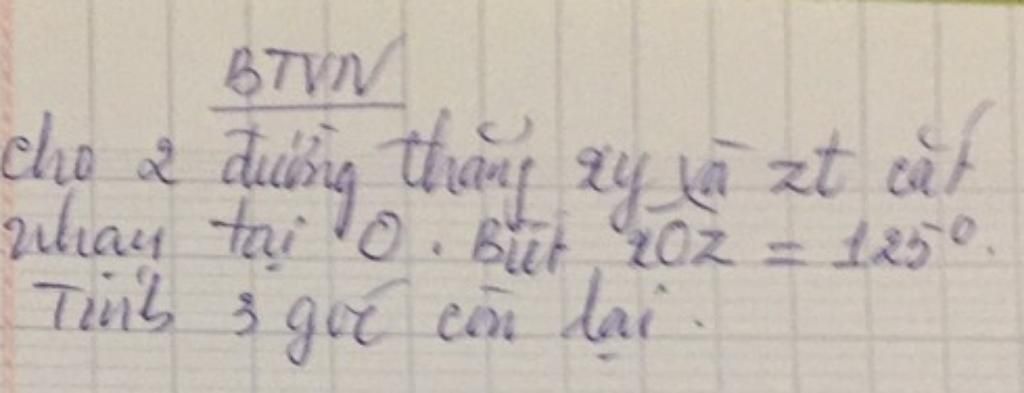 BTVN
Cho 2 đường thẳng xy và zt cắt
nhau tại O. Biết xOz = 125°.
Tính 3 góc còn lại.